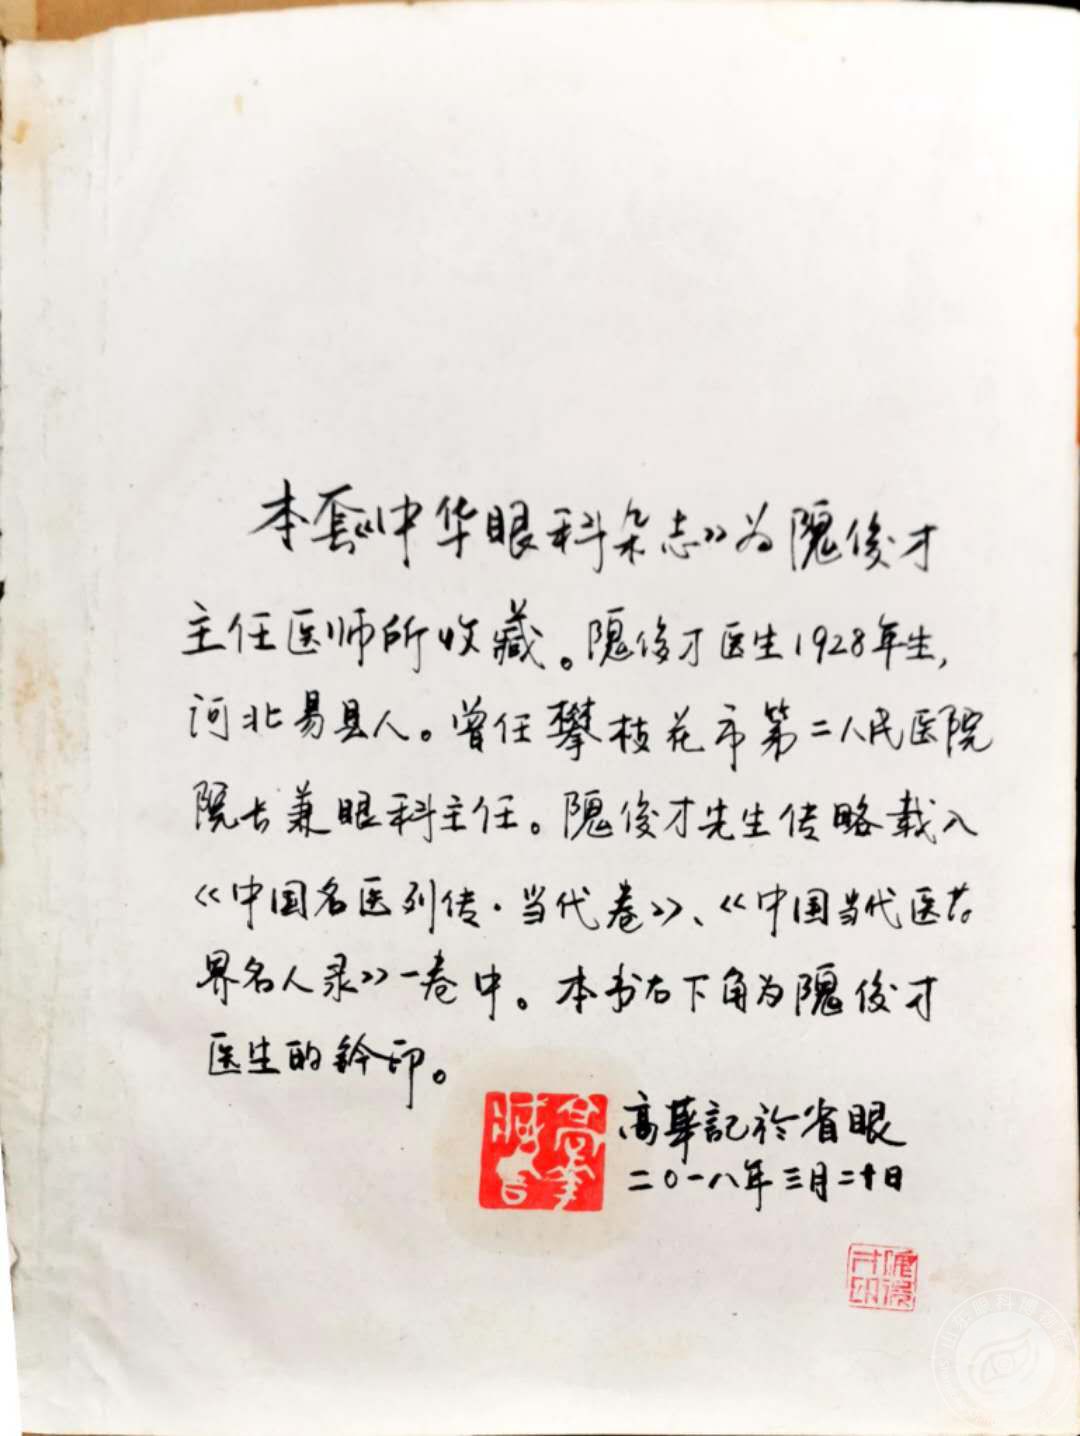 本套《中华眼科杂志》为隗俊才
主任医师所收藏。隗俊才医生1928年生，
河北易县人。曾任攀枝花市第二人民医院
院长兼眼科主任。隗俊才先生传略载入
《中国名医列传·当代卷》、《中国当代医药
界名人录》一卷中。本书右下角为隗俊才
医生的钤印。
高華記於省眼
二〇一八年三月二十日
高華
藏書
隗俊
才印
山东眼科博物馆